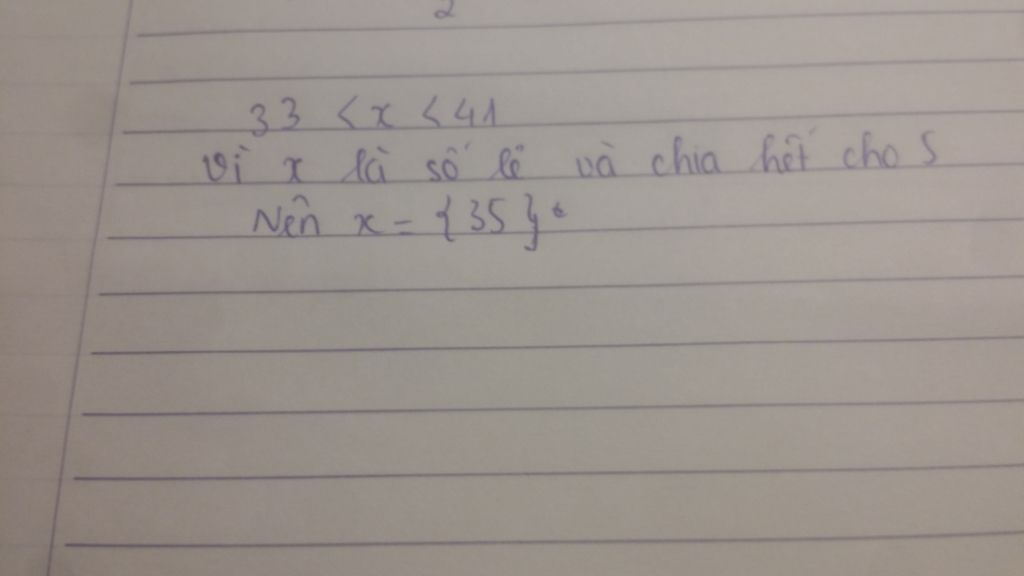 2
33 < x < 41
Vì x là số lẻ và chia hết cho 5
Nên x = {35}